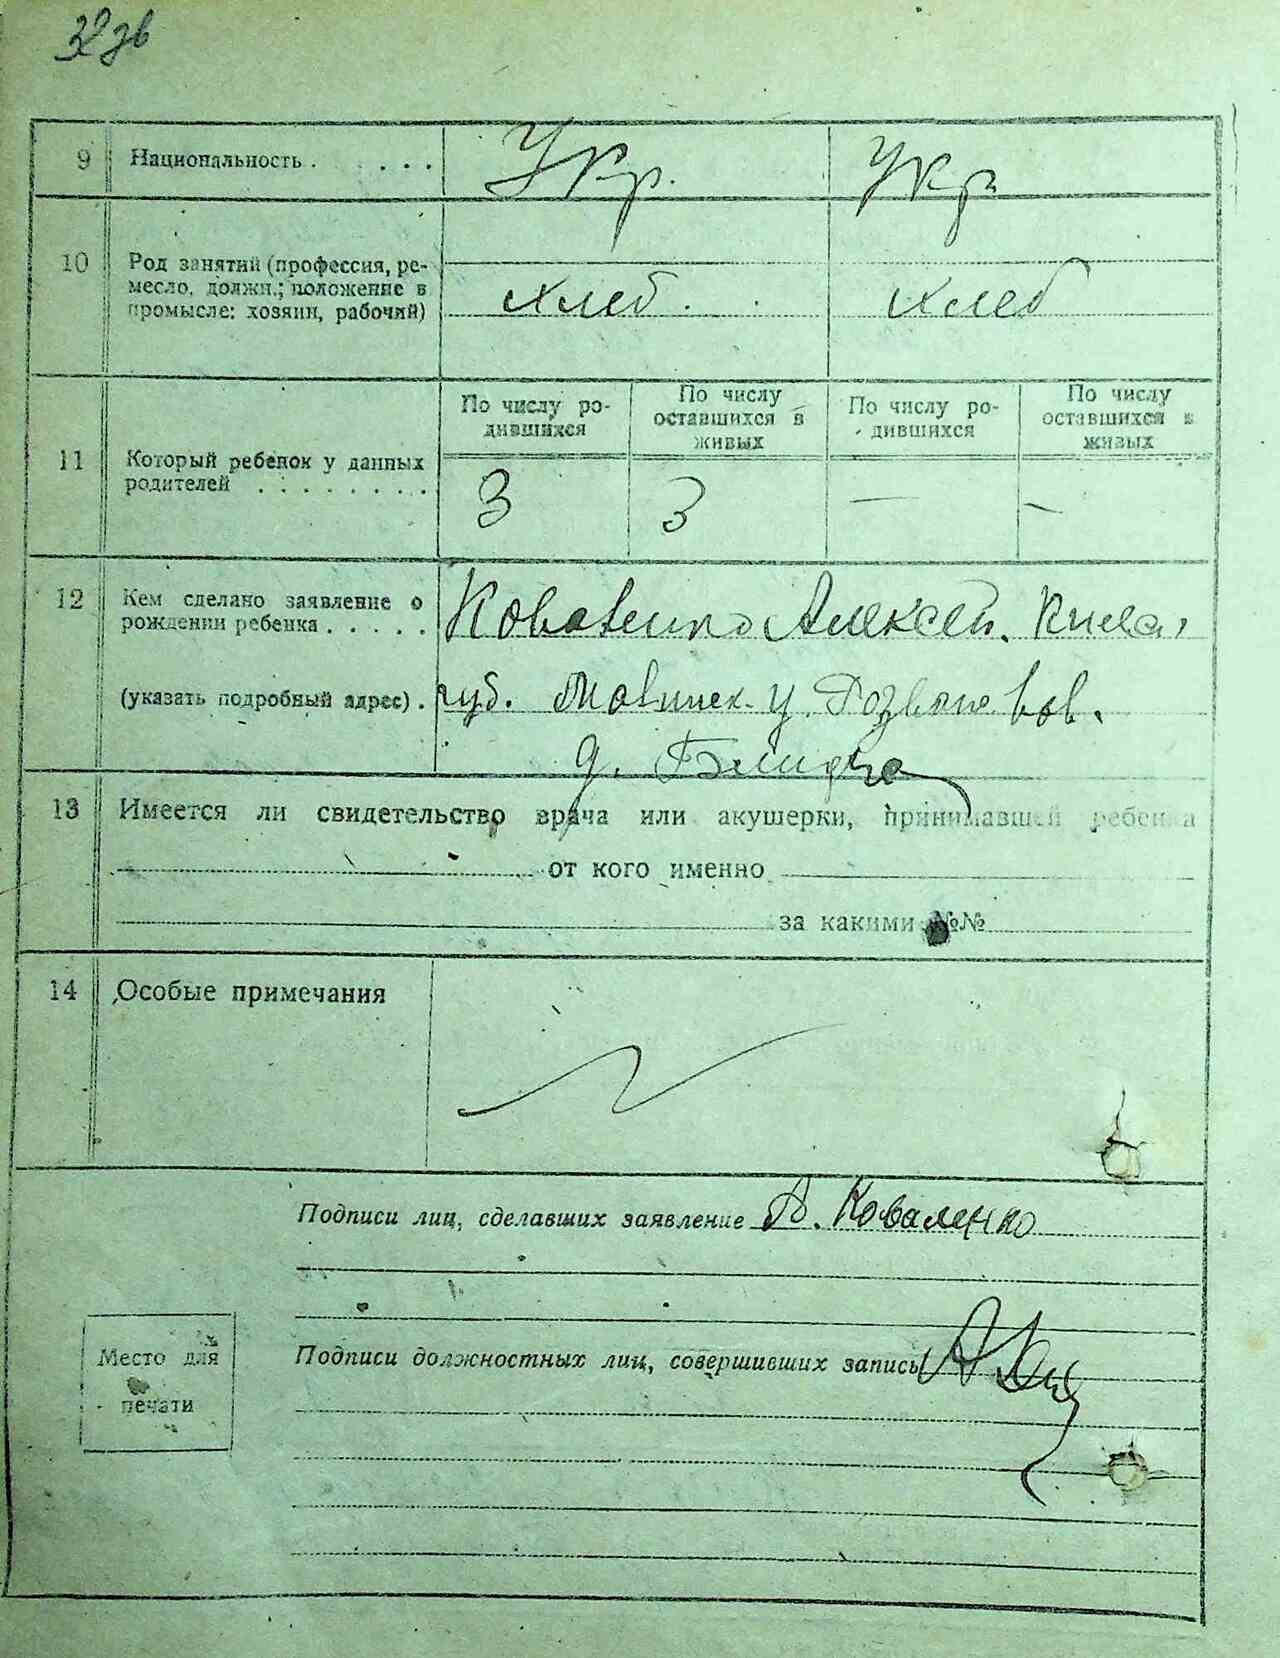 32 зв
9 Национальность . . . . Укр. Укр
10 Род занятий (профессия, ре-
месло, должн.; положение в
промысле: хозяин, рабочий) хлеб. хлеб
По числу ро-
дившихся
По числу
оставшихся в
живых
По числу ро-
дившихся
По числу
оставшихся в
живых
11 Который ребенок у данных
родителей . . . . . . . . 3 3 — —
12 Кем сделано заявление о
рождении ребенка . . . . . Коваленко Алексей.
(указать подробный адрес) . губ. у.
д.
13 Имеется ли свидетельство врача или акушерки, принимавшей ребенка
от кого именно
за какими №№
14 Особые примечания
Подписи лиц, сделавших заявление А. Коваленко
Подписи должностных лиц, совершивших запись
Место для
печати